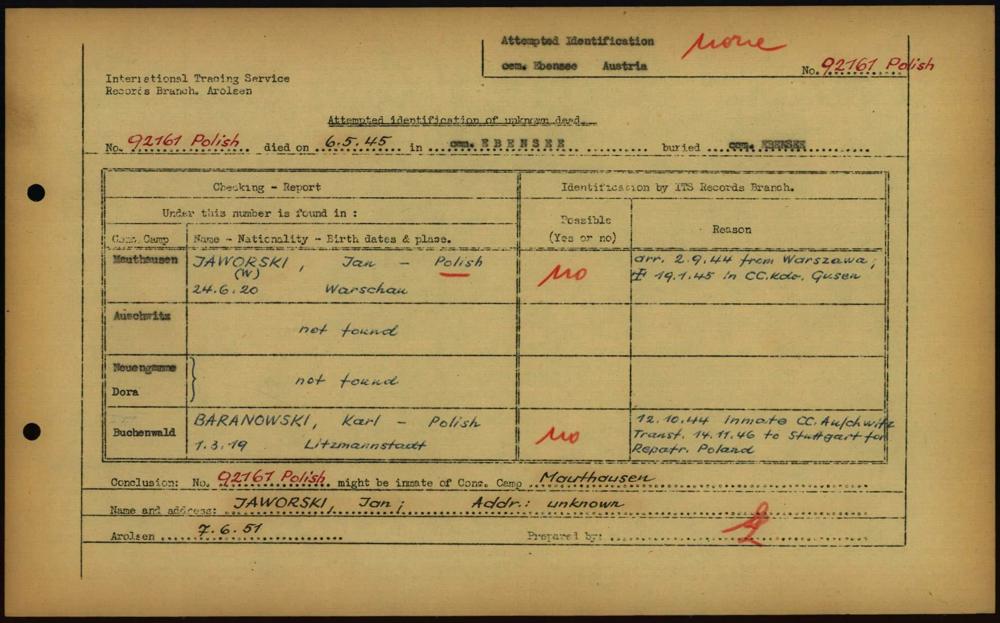 Attempted Identification none
cem. Ebensee Austria
No. 92161 Polish
International Tracing Service
Records Branch. Arolsen
Attempted identification of unknown dead.
No. 92161 Polish died on 6.5.45 in cem. EBENSEE buried cem. EBENSEE
Checking - Report Identification by ITS Records Branch.
Under this number is found in : Possible (Yes or no) Reason
Conc. Camp Name - Nationality - Birth dates & place.
Mauthausen JAWORSKI, Jan - Polish no arr. 2.9.44 from Warszawa;
(W)
24.6.20 Warschau 19.1.45 in CC.Kdo. Gusen
Auschwitz not found
Neuengamme
Dora not found
Buchenwald BARANOWSKI, Karl - Polish no 12.10.44 inmate CC. Auschwitz
1.3.19 Litzmannstadt Transf. 14.11.46 to Stuttgart for
Repatr. Poland
Conclusion: No. 92161 Polish might be inmate of Conc. Camp Mauthausen
Name and address: JAWORSKI, Jan; Addr.: unknown
Arolsen 7.6.51 Prepared by: